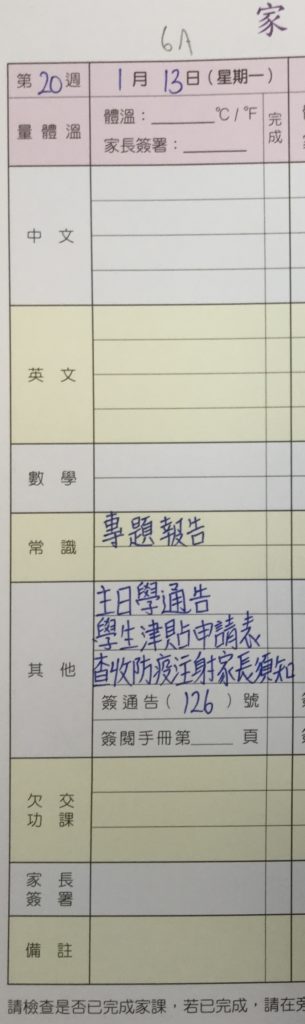 家
6A
第 20 週 1 月 13 日 ( 星期一 )
量體溫 體溫：______ °C / °F 完成
家長簽署：______
中 文
英 文
數 學
常 識 專題報告
主日學通告
學生津貼申請表
其 他 查收防疫注射家長須知
簽通告 ( 126 ) 號
簽閱手冊第____ 頁
欠 交
功 課
家 長
簽 署
備 註
請檢查是否已完成家課，若已完成，請在旁